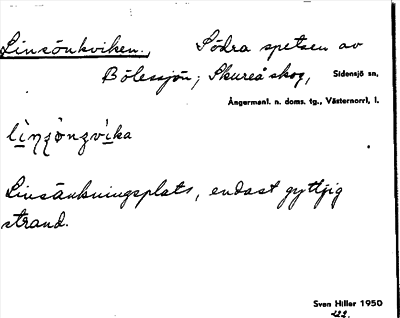 Linsönkviken., Södra spetsen av
Bölessjön, Skureå skog, Sidensjö sn,
Ångermanl. n. doms. tg., Västernorrl, l.
Linsänkningsplats, endast gyttjig
strand.
Sven Hiller 1950
122.